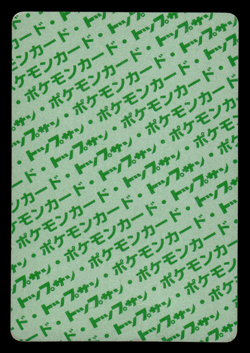 カード・トップサン
トップサン・ポケモンカード・
ポケモンカード・トップサン・
・トップサン・ポケモンカード
・ポケモンカード・トップサン・
トップサン・ポケモンカード・
ポケモンカード・トップサン・
・トップサン・ポケモンカード
・ポケモンカード・トップサン・
トップサン・ポケモンカード・
ポケモンカード・トップサン・
・トップサン・ポケモンカード
・ポケモンカード・トップサン
トップサン・ポケモン